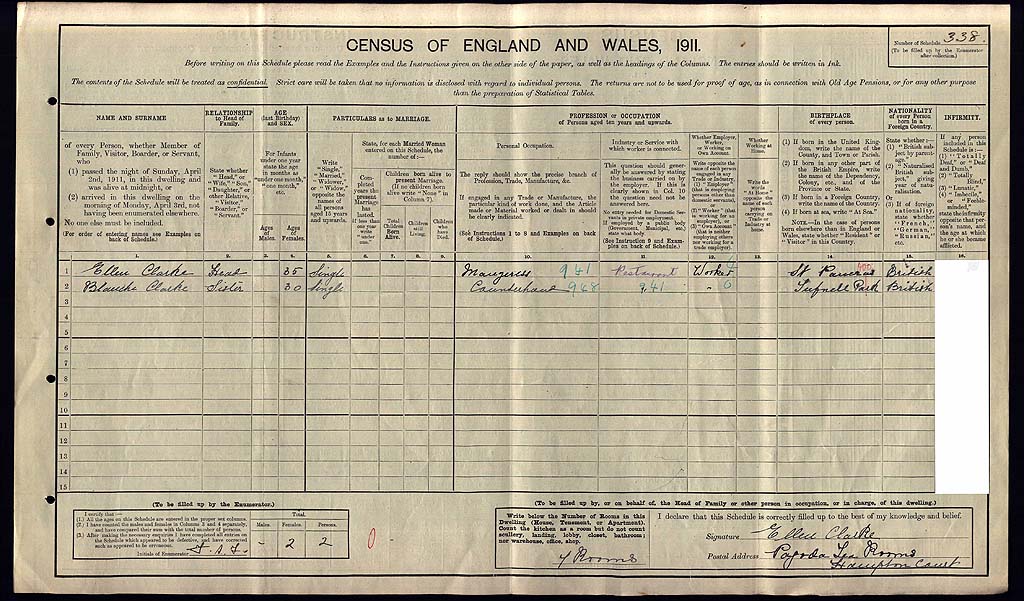 CENSUS OF ENGLAND AND WALES, 1911.
Number of Schedule 338.
(To be filled up by the Enumerator after collection.)
Before writing on this Schedule please read the Examples and the Instructions given on the other side of the paper, as well as the headings of the Columns. The entries should be written in Ink.
The contents of the Schedule will be treated as confidential. Strict care will be taken that no information is disclosed with regard to individual persons. The returns are not to be used for proof of age, as in connection with Old Age Pensions, or for any other purpose
than the preparation of Statistical Tables.
NAME AND SURNAME
of every Person, whether Member of Family, Visitor, Boarder, or Servant, who
(1) passed the night of Sunday, April 2nd, 1911, in this dwelling and was alive at midnight, or
(2) arrived in this dwelling on the morning of Monday, April 3rd, not having been enumerated elsewhere.
No one else must be included.
(For order of entering names see Examples on back of Schedule.)
RELATIONSHIP to Head of Family.
State whether "Head," or "Wife," "Son," "Daughter," or other Relative, "Visitor," "Boarder," or "Servant."
AGE (last Birthday) and SEX.
For Infants under one year state the age in months as "under one month," "one month," etc.
Ages of Males.
Ages of Females.
PARTICULARS as to MARRIAGE.
Write "Single," "Married," "Widower," or "Widow," opposite the names of all persons aged 15 years and upwards.
State, for each Married Woman entered on this Schedule, the number of :—
Completed years the present Marriage has lasted. If less than one year write "under one."
Children born alive to present Marriage. (If no children born alive write "None" in Column 7).
Total Children Born Alive.
Children still Living.
Children who have Died.
PROFESSION or OCCUPATION
of Persons aged ten years and upwards.
Personal Occupation.
The reply should show the precise branch of Profession, Trade, Manufacture, &c.
If engaged in any Trade or Manufacture, the particular kind of work done, and the Article made or Material worked or dealt in should be clearly indicated.
(See Instructions 1 to 8 and Examples on back of Schedule.)
Industry or Service with which worker is connected.
This question should generally be answered by stating the business carried on by the employer. If this is clearly shown in Col. 10 the question need not be answered here.
No entry needed for Domestic Servants in private employment. If employed by a public body (Government, Municipal, etc.) state what body.
(See Instruction 9 and Examples on back of Schedule.)
Whether Employer, Worker, or Working on Own Account.
Write opposite the name of each person engaged in any Trade or Industry,
(1) "Employer" (that is employing persons other than domestic servants),
(2) "Worker" (that is working for an employer), or
(3) "Own Account" (that is neither employing others nor working for a trade employer).
Whether Working at Home.
Write the words "At Home" opposite the name of each person carrying on Trade or Industry at home.
BIRTHPLACE of every person.
(1) If born in the United Kingdom, write the name of the County, and Town or Parish.
(2) If born in any other part of the British Empire, write the name of the Dependency, Colony, etc., and of the Province or State.
(3) If born in a Foreign Country, write the name of the Country.
(4) If born at sea, write "At Sea."
NOTE.—In the case of persons born elsewhere than in England or Wales, state whether "Resident" or "Visitor" in this Country.
NATIONALITY of every Person born in a Foreign Country.
State whether :—
(1) "British subject by parentage,"
(2) "Naturalised British subject," giving year of naturalisation.
Or
(3) If of foreign nationality, state whether "French," "German," "Russian," etc.
INFIRMITY.
If any person included in this Schedule is :—
(1) "Totally Deaf," or "Deaf and Dumb,"
(2) "Totally Blind,"
(3) "Lunatic,"
(4) "Imbecile," or "Feeble-minded,"
state the infirmity opposite that person's name, and the age at which he or she became afflicted.
1. 2. 3. 4. 5. 6. 7. 8. 9. 10. 11. 12. 13. 14. 15. 16.
1 Ellen Clarke Head 35 Single Mangeress 941 Restaurant Worker St Pancras British
2 Blanche Clarke Sister 30 Single Counterhand 968 941 " 6 Tufnell Park British
3
4
5
6
7
8
9
10
11
12
13
14
15
(To be filled up by the Enumerator.)
I certify that :—
(1.) All the ages on this Schedule are entered in the proper sex columns.
(2.) I have counted the males and females in Columns 3 and 4 separately, and have compared their sum with the total number of persons.
(3.) After making the necessary enquiries I have completed all entries on the Schedule which appeared to be defective, and have corrected such as appeared to be erroneous.
Initials of Enumerator
Total.
Males. Females. Persons.
- 2 2
0
(To be filled up by, or on behalf of, the Head of Family or other person in occupation, or in charge, of this dwelling.)
Write below the Number of Rooms in this Dwelling (House, Tenement, or Apartment). Count the kitchen as a room but do not count scullery, landing, lobby, closet, bathroom; nor warehouse, office, shop.
Rooms
I declare that this Schedule is correctly filled up to the best of my knowledge and belief.
Signature Ellen Clarke
Postal Address Pagoda Tea Rooms
Hampton Court